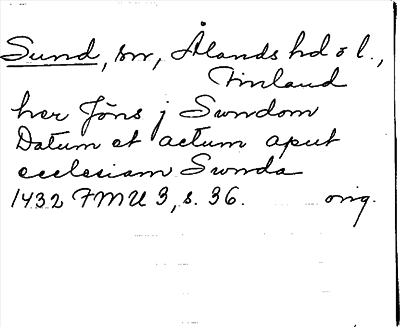 Sund, sn, Ålands hd o l.,
Finland
her Jöns j Swndom
Datum et actum aput
ecclesiam Swnda
1432 FMU 3, s. 36. orig.